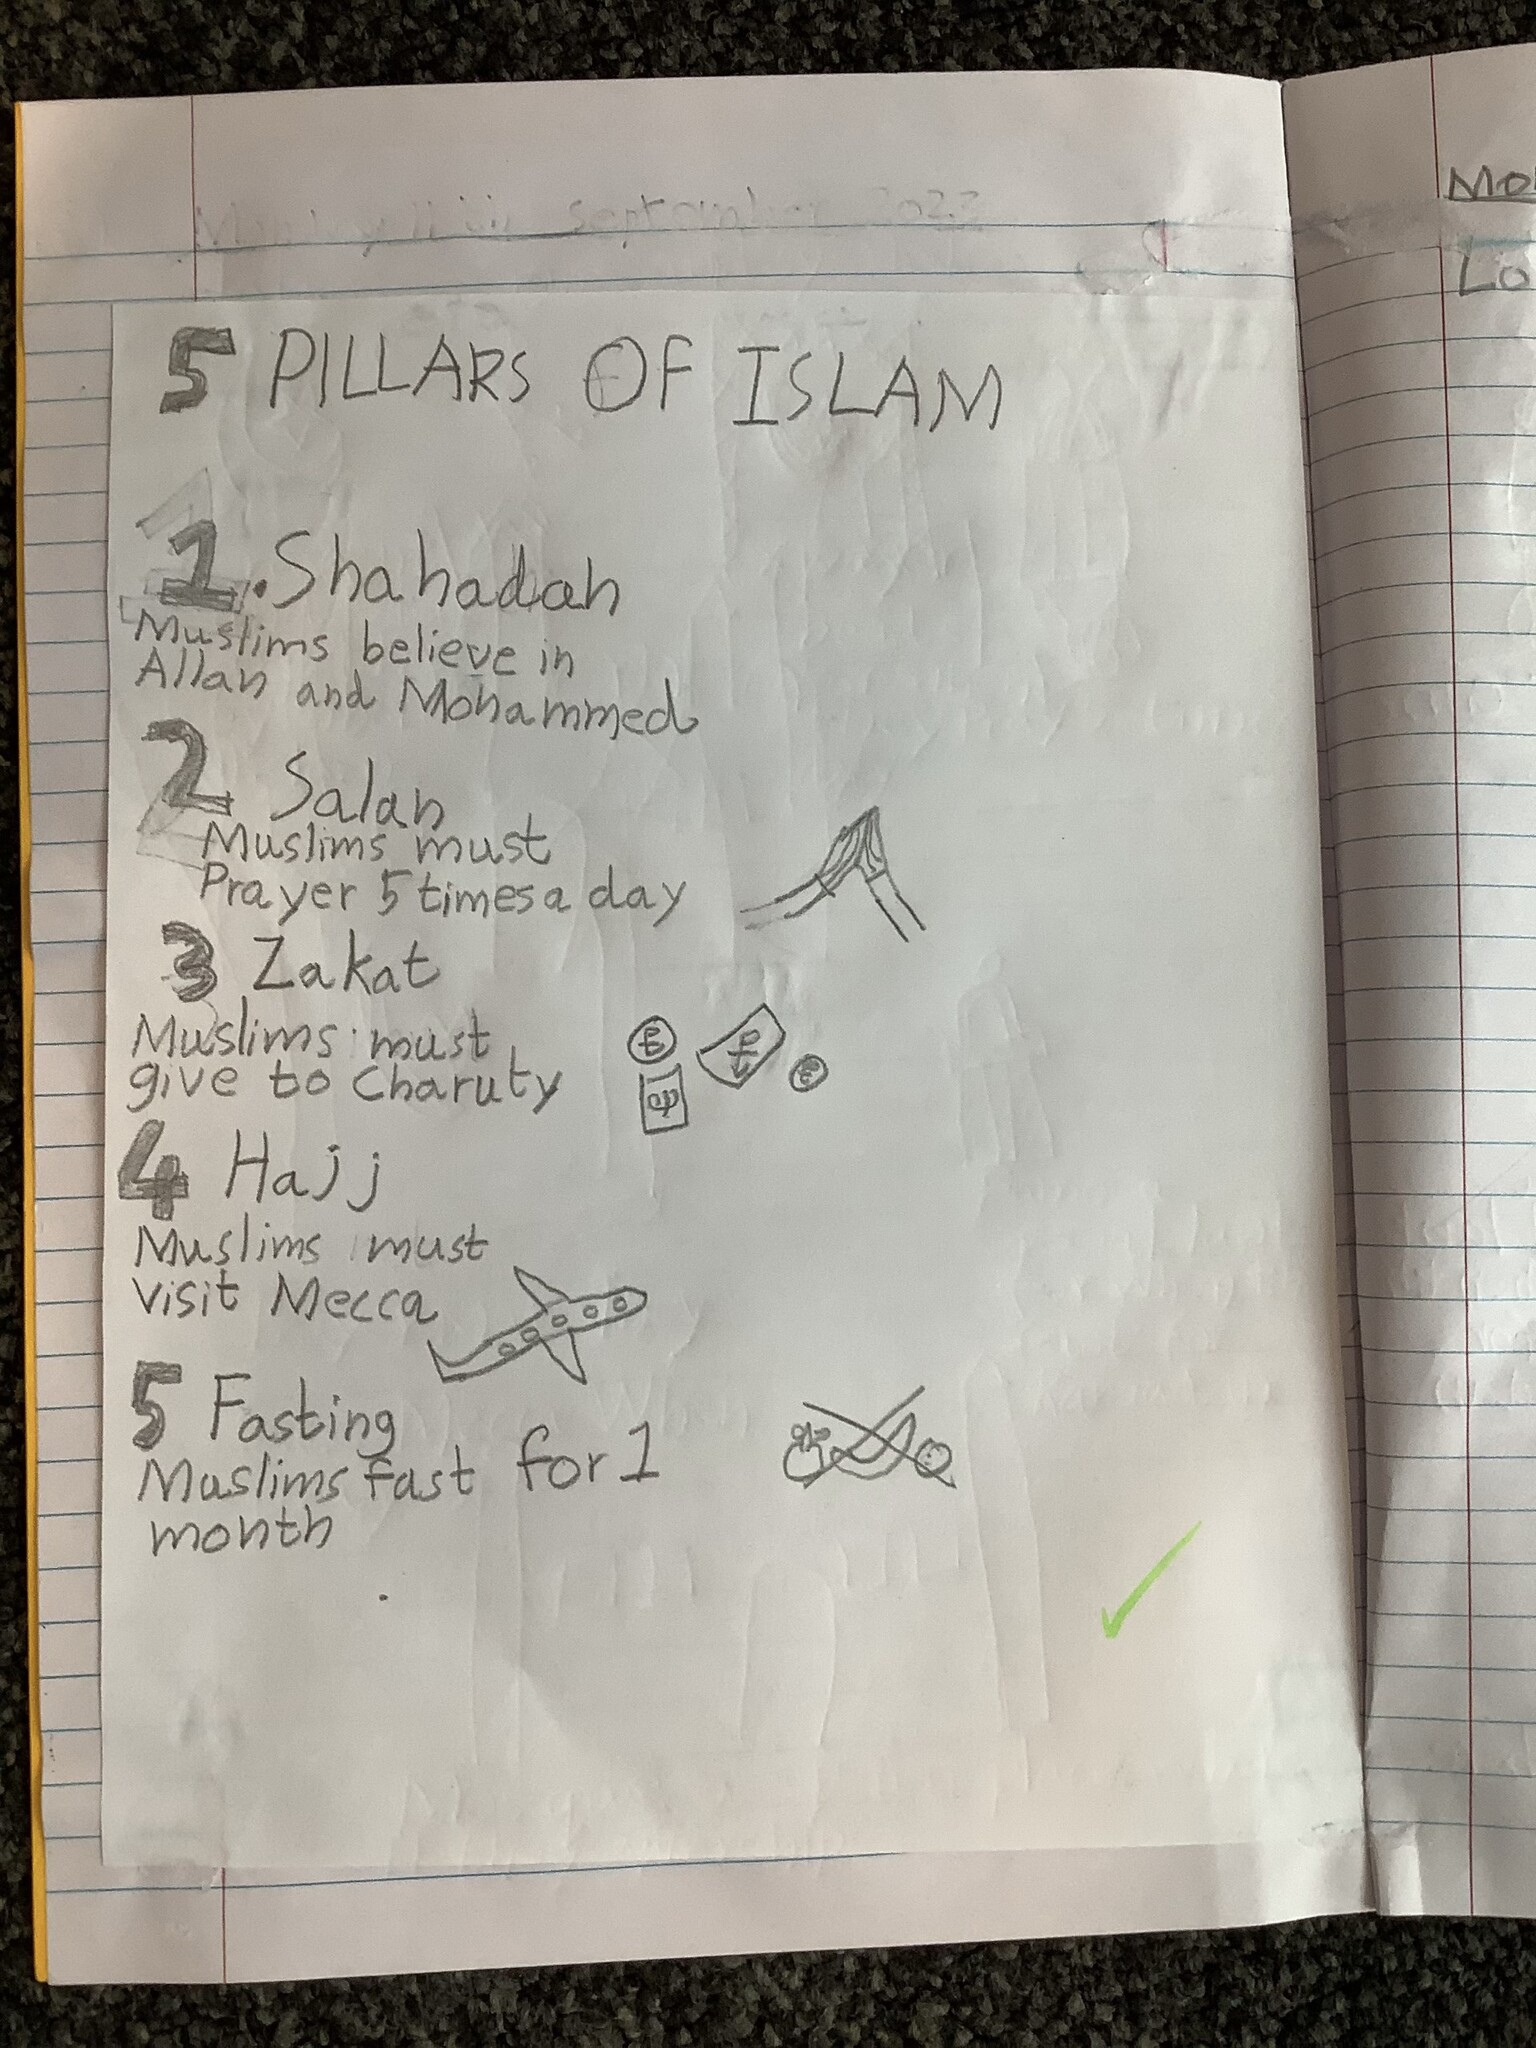 5 PILLARS OF ISLAM
1. Shahadah
Muslims believe in
Allah and Mohammed
2 Salah
Muslims must
Prayer 5 times a day
3 Zakat
Muslims must
give to Charuty
4 Hajj
Muslims must
visit Mecca
5 Fasting
Muslims fast for 1
month
Mo
Lo